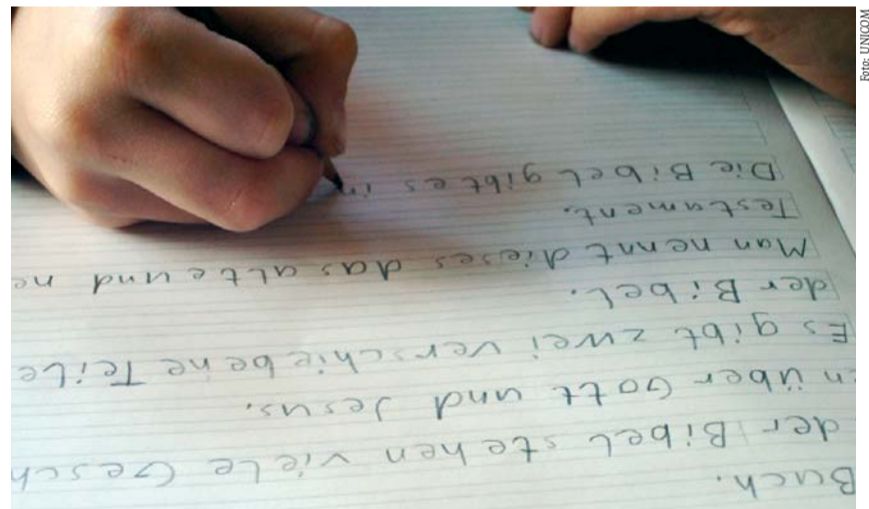 Buch.
der Bibel stehen viele Gesch
n über Gott und Jesus.
Es gibt zwei verschiebene Teile
der Bibel.
Man nennt dieses das alte und ne
Testament.
Die Bibel gibt es in
Foto: UNICOM